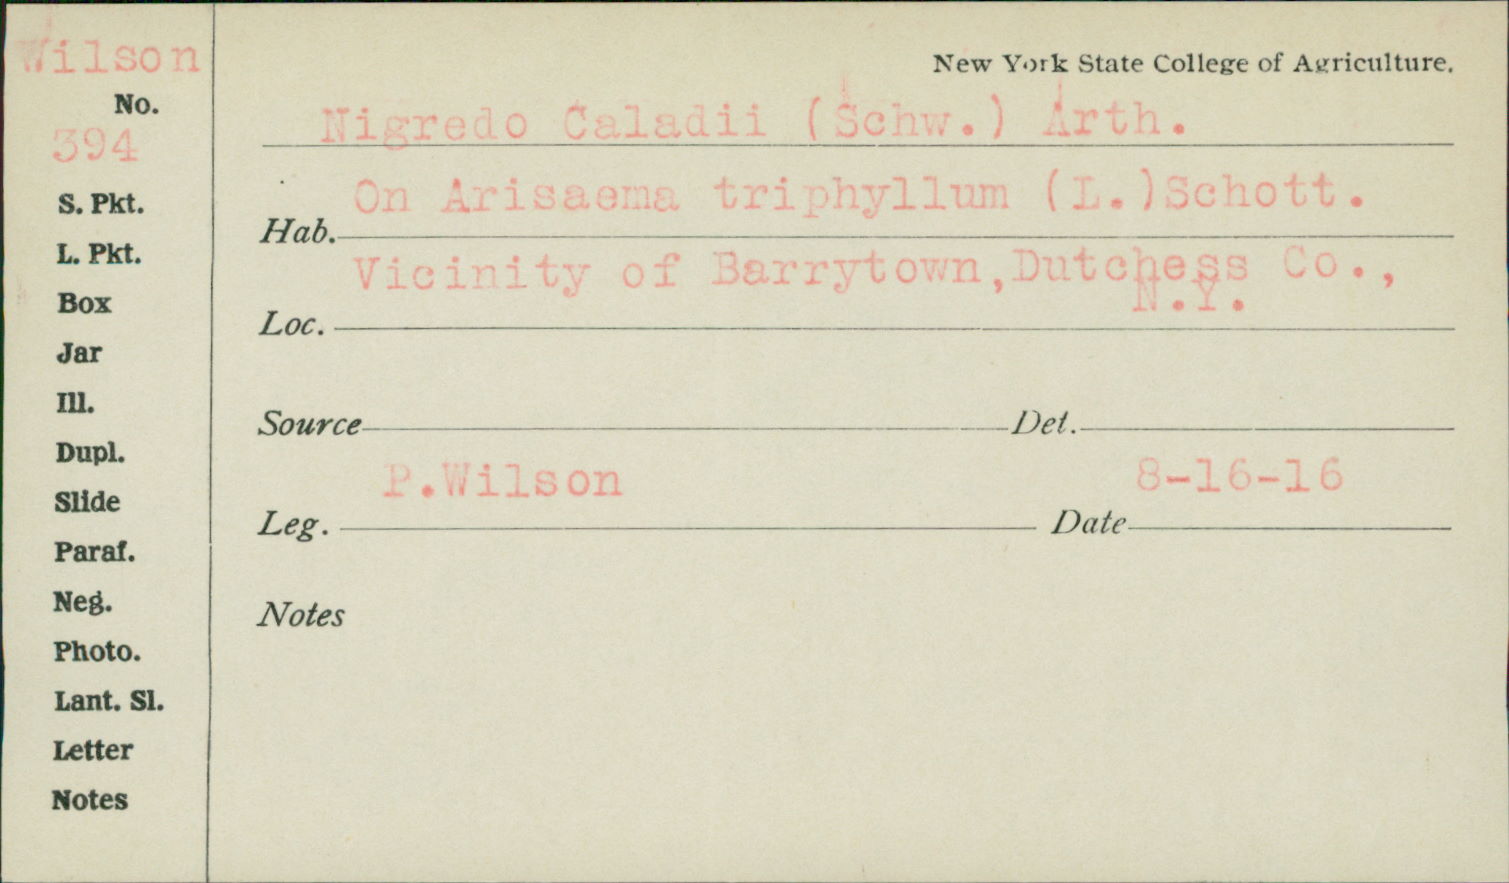 Wilson
No.
394
S. Pkt.
L. Pkt.
Box
Jar
Ill.
Dupl.
Slide
Paraf.
Neg.
Photo.
Lant. Sl.
Letter
Notes
New York State College of Agriculture.
Nigredo Caladii (Schw.) Arth.
Hab. On Arisaema triphyllum (L.)Schott.
Loc. Vicinity of Barrytown,Dutchess Co.,
N.Y.
Source Det.
Leg. P.Wilson Date 8-16-16
Notes